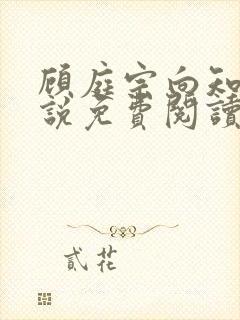 顾庭宗向知
說免費閱讀
貳花